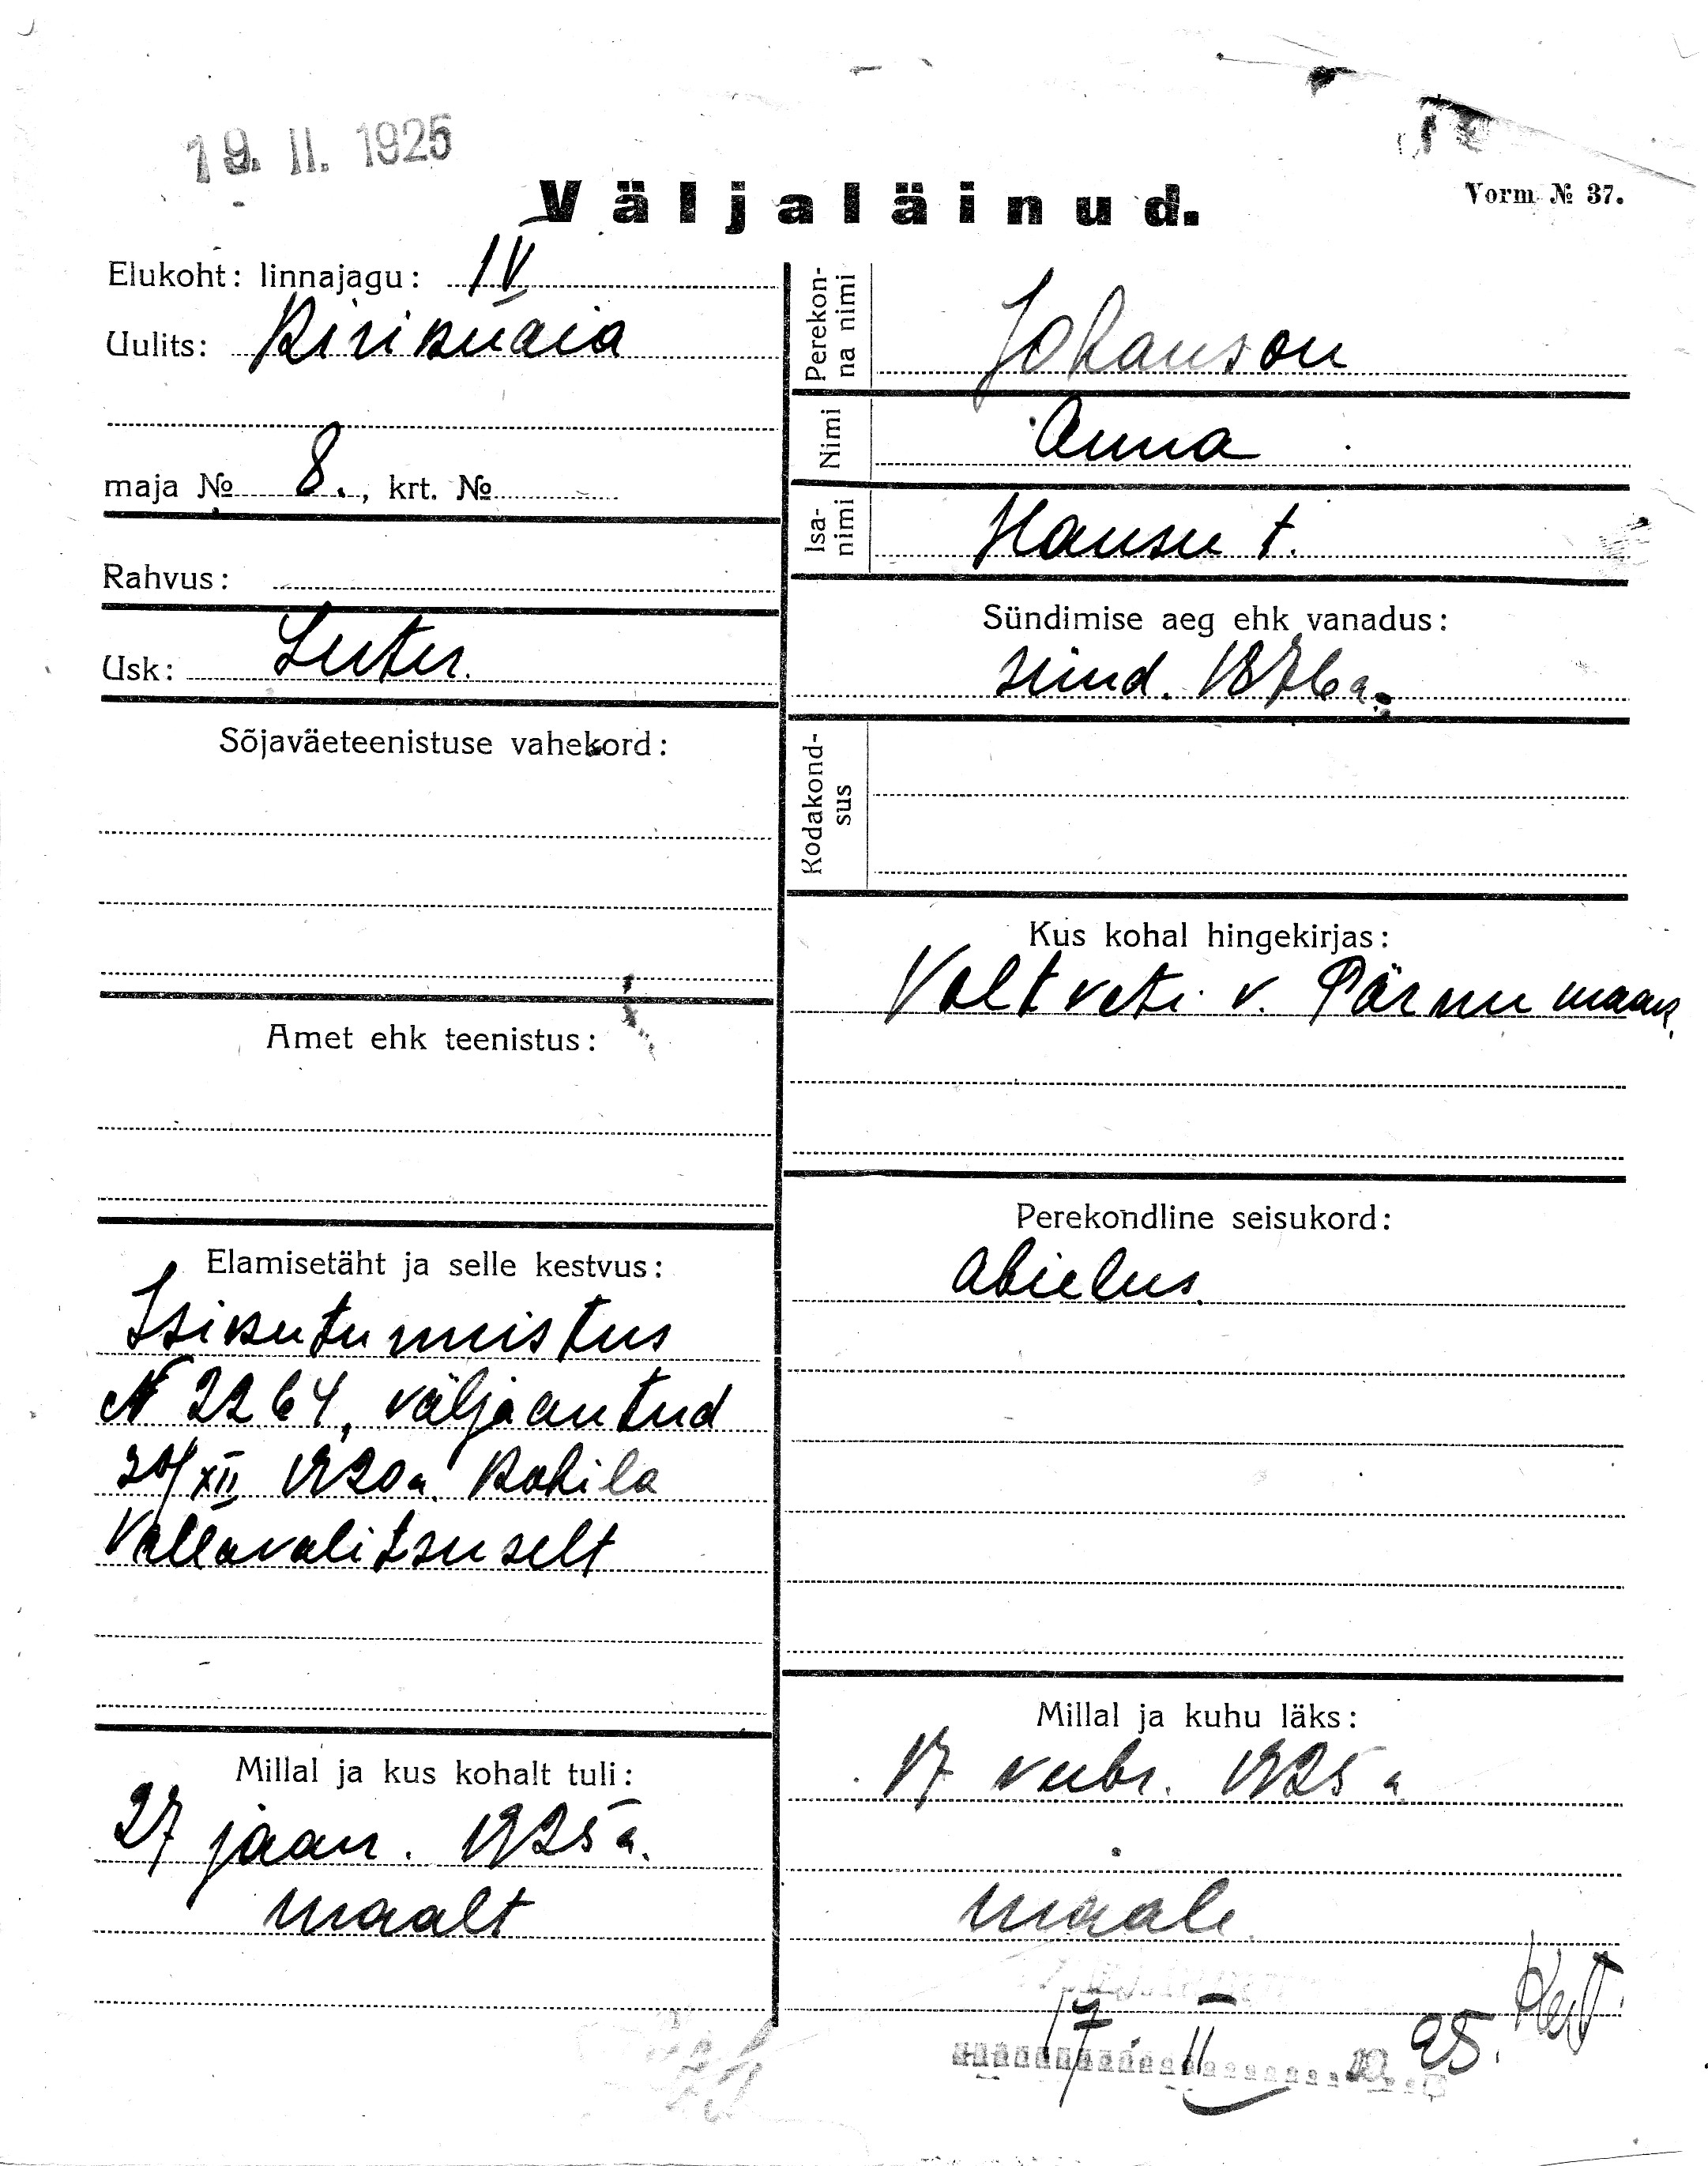 19. II. 1925
Väljaläinud.
Vorm № 37.
Elukoht: linnajagu: IV
Uulits: Kirikuaia
maja № 8., krt. №
Rahvus:
Usk: Luter.
Sõjaväeteenistuse vahekord:
Amet ehk teenistus:
Elamisetäht ja selle kestvus:
Isikutunnistus
N 2264, väljaantud
/XII 1920a. Kohila
Vallavalitsuselt
Millal ja kus kohalt tuli:
27 jaan. 1925 a.
maalt
Perekonna nimi
Johanson
Nimi
Anna
Isanimi
Hansu t.
Sündimise aeg ehk vanadus:
sünd. 1876 a.
Kodakondsus
Kus kohal hingekirjas:
Voltveti v. Pärnu maak.
Perekondline seisukord:
abielus.
Millal ja kuhu läks:
17 veebr. 1925 a.
maale.
17 II 25.